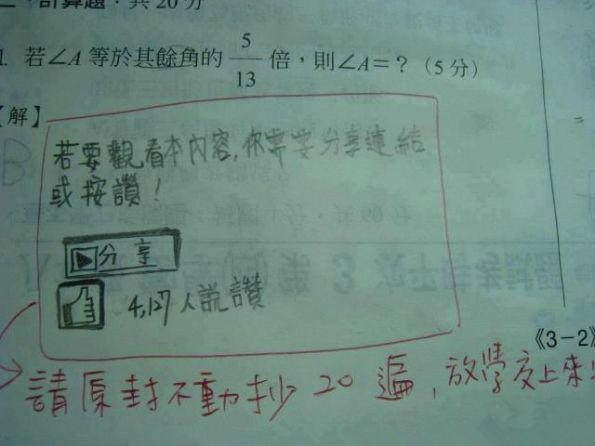 二、計算題：共 20 分
1. 若∠A 等於其餘角的 5/13 倍，則∠A＝？（5 分）
【解】
若要觀看本內容,你需要分享連結
或按讚！
▶分享
4,127 人說讚
《3－2》
請原封不動抄 20 遍，放學交上來